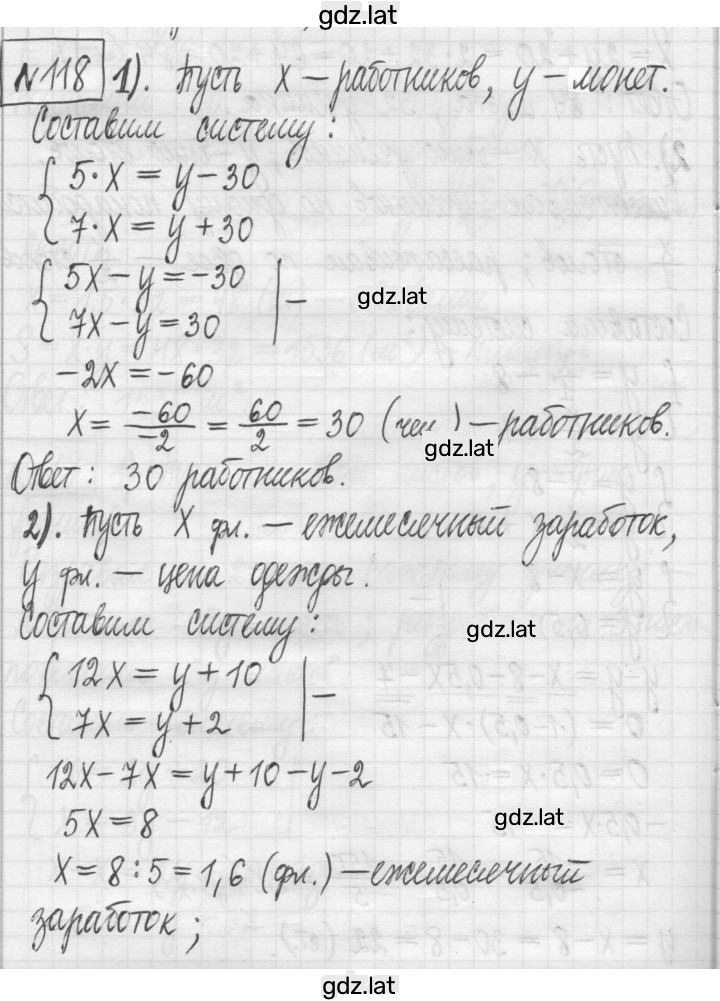 gdz.lat
№118 1). Пусть x – работников, y – монет.
Составим систему:
{ 5·x = y – 30
{ 7·x = y + 30
{ 5x – y = –30 | –
{ 7x – y = 30
gdz.lat
–2x = –60
x = –60/–2 = 60/2 = 30 (чел) – работников.
gdz.lat
Ответ: 30 работников.
2). Пусть x фл. – ежемесячный заработок,
y фл. – цена одежды.
Составим систему:
gdz.lat
{ 12x = y + 10 | –
{ 7x = y + 2
12x – 7x = y + 10 – y – 2
5x = 8
gdz.lat
x = 8 : 5 = 1,6 (фл.) – ежемесячный
заработок;
gdz.lat